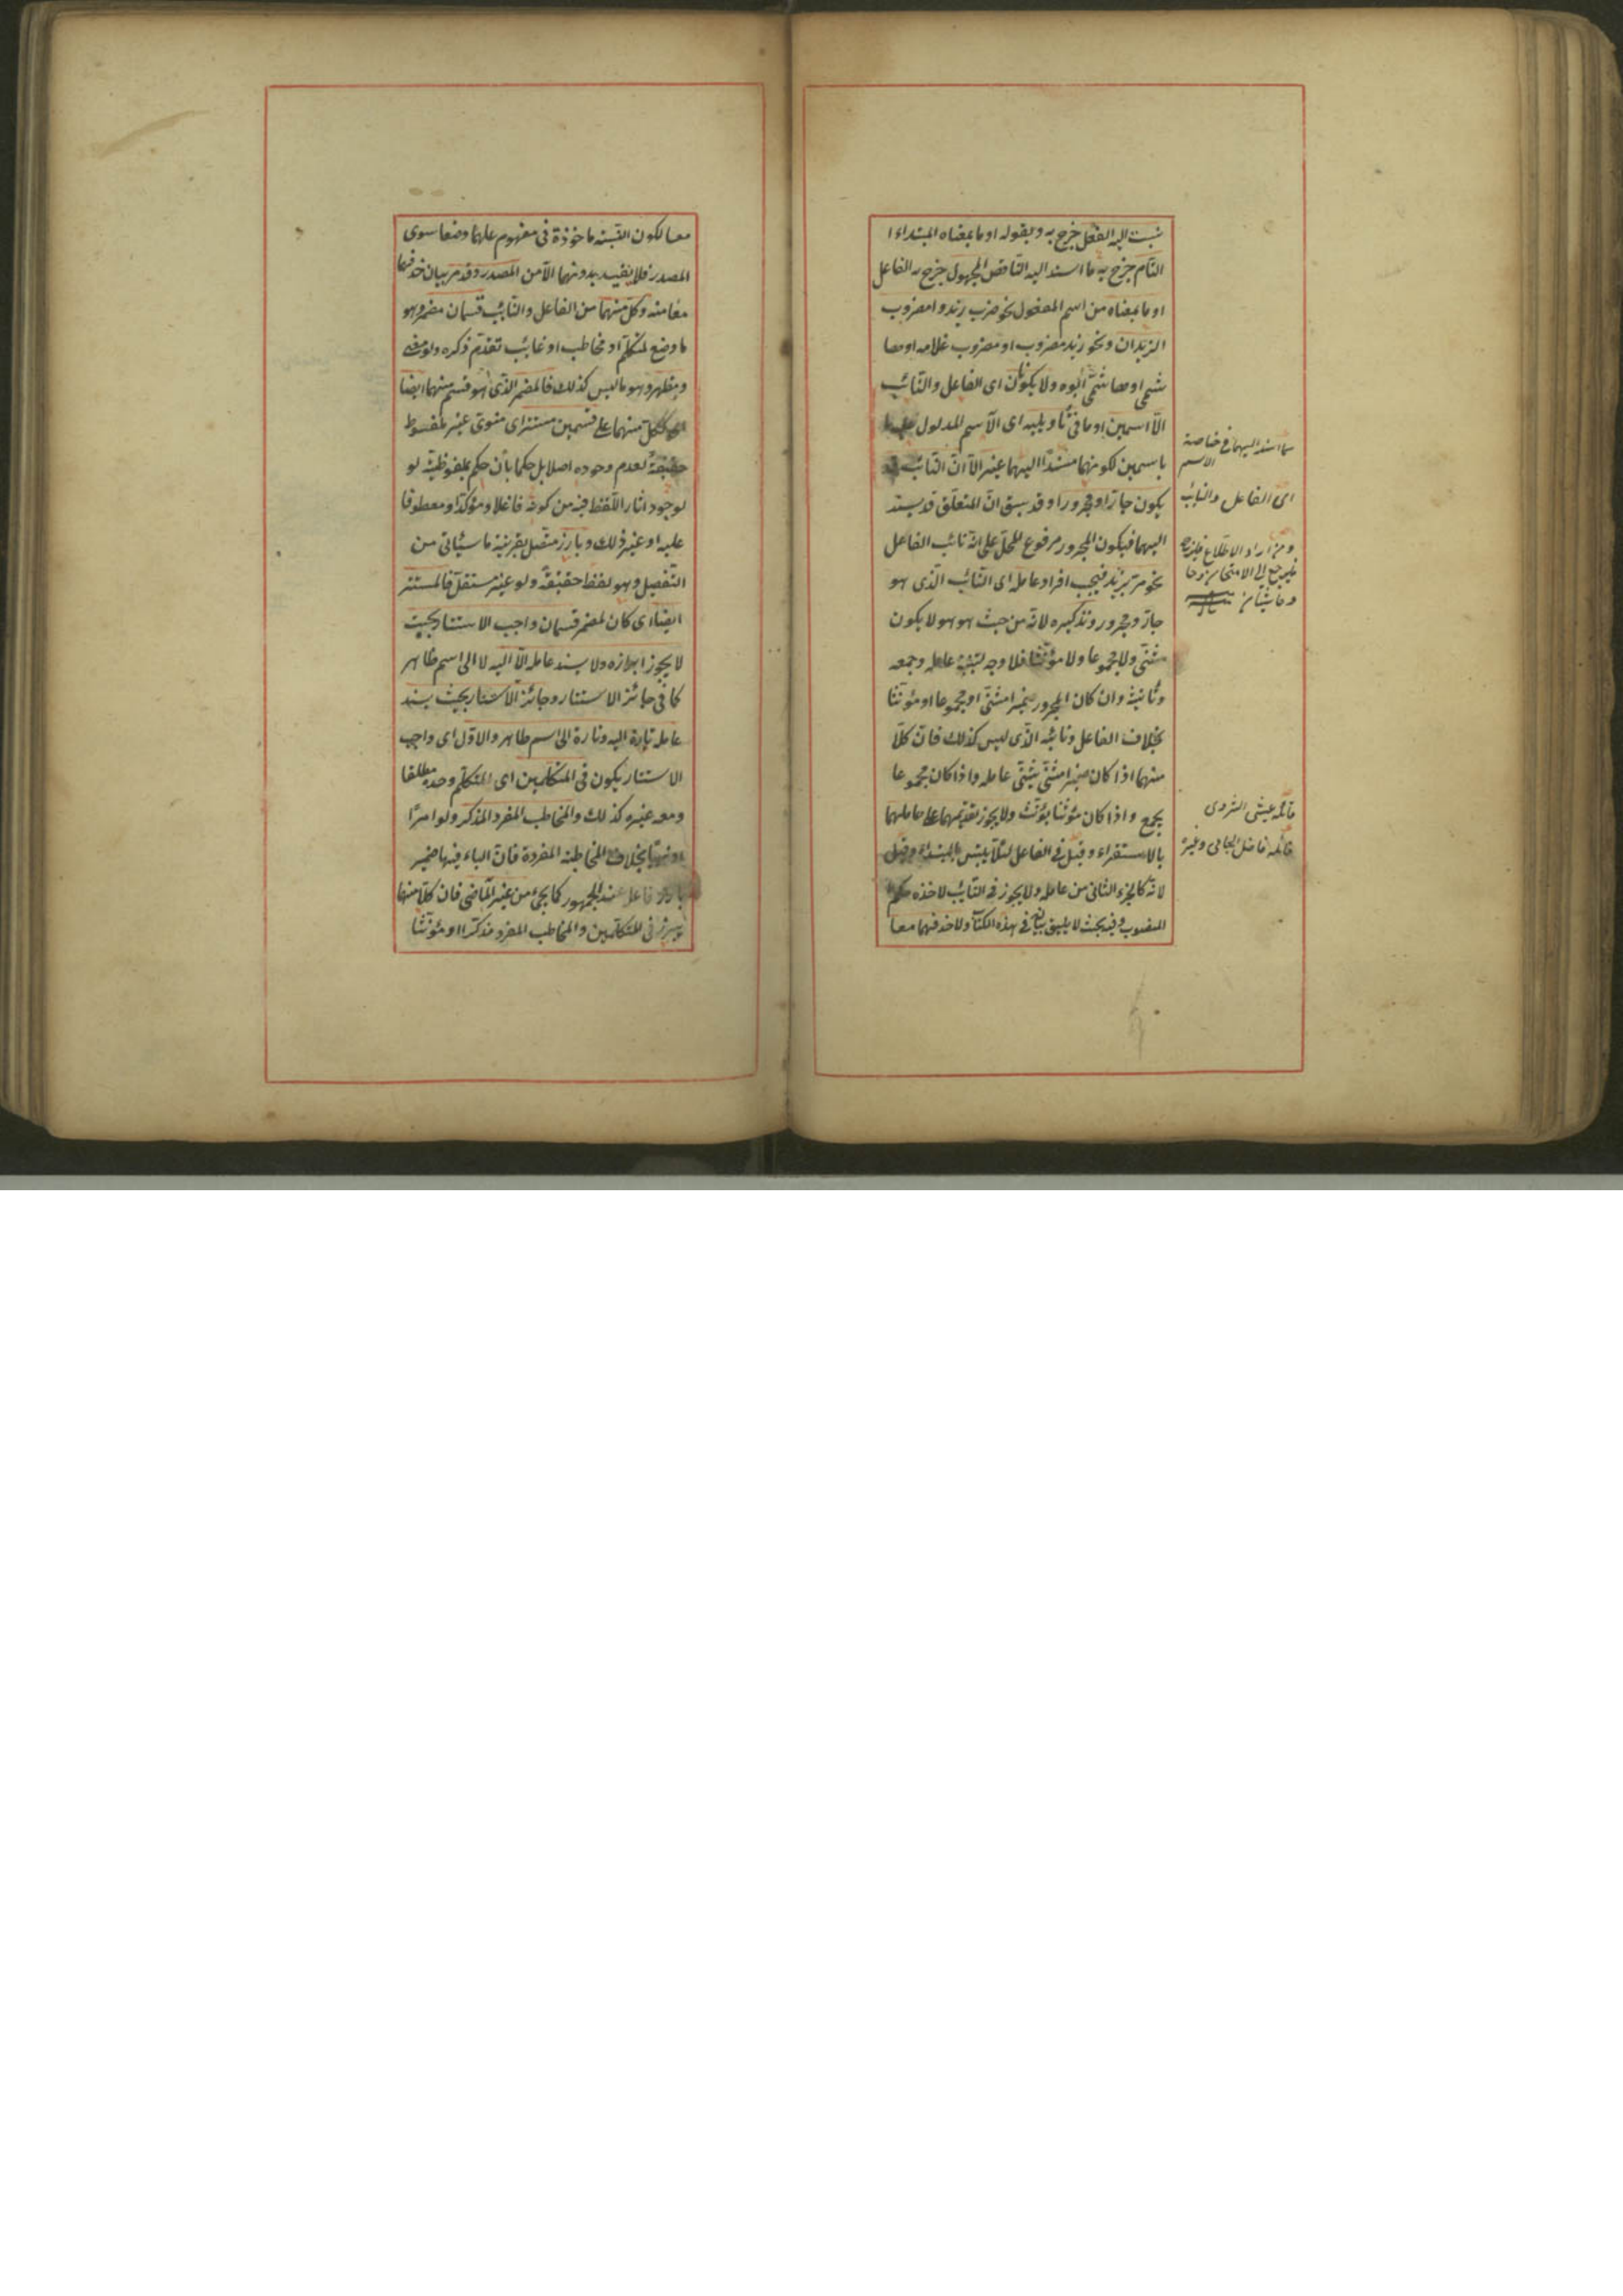 نسبت اليه الفعل خرج به وبقوله او ما بمعناه المبتداء
التام خرج به ما اسند اليه الناقص المجهول خرج به الفاعل
او ما بمعناه من اسم المفعول نحو ضرب زيد وامضروب
الزيدان ونحو زيد مضروب او مضروب غلامه او
او ابوه ولا يكونان اى الفاعل والنائب
الا اسمين او ما فى تأويله اى الاسم المدلول عليه
باسمين لكونهما مسندًا اليهما غير الا ان النائب قد
يكون جارًا ومجرورا وقد سبق ان المتعلق قد يسند
اليهما فيكون المجرور مرفوع المحل على انه نائب الفاعل
نحو مر بزيد فيجب افراد عامله اى النائب الذى هو
جار ومجرور وتذكيره لانه من حيث هو هو لا يكون
مثنى ولا مجموعا ولا مؤنثا فلا وجه لتثنية عامله وجمعه
وتأنيثه وان كان المجرور ضميرا مثنى او مجموعا او مؤنثا
بخلاف الفاعل ونائبه الذى ليس كذلك فان كلا
منهما اذا كان ضميرا مثنى يثنى عامله واذا كان مجموعا
يجمع واذا كان مؤنثا يؤنث ولا يجوز تقديمهما على عاملهما
بالاستقراء وقيل فى الفاعل لئلا يلتبس بالمبتداء وقيل
لانه كالجزء الثانى من عامله ولا يجوز فى النائب لاخذه حكم
المنصوب وفيه بحث لا يليق بيانه فى هذه الكتاب ولا حذفهما معا
اسند اليهما فى خاصة
الاسم
اى الفاعل والنائب
ومن اراد الاطلاع
فليرجع الى الامتحان
قائله عيشى التروى
قائله فاضل الجامى وغيره
معا لكون النسبة مأخوذة فى مفهوم وضعا سوى
المصدر فلا يفيد بدونهما الا من المصدر وقد مر بيان حذفهما
معا منه وكل منهما من الفاعل والنائب قسمان مضمر وهو
ما وضع لمتكلم او مخاطب او غائب تقدم ذكره ولو معنى
ومظهر وهو ما ليس كذلك فالمضمر الذى هو قسم منهما ايضا
اى ككل منهما على قسمين مستتر اى منوى غير ملفوظ
حقيقة لعدم وجوده اصلا بل حكما بأن حكم بملفوظيته
لوجود اثار اللفظ فيه من كونه فاعلا ومؤكدًا ومعطوفا
عليه او غير ذلك وبارز متصل بقرينة ما سيأتى من
التفصيل وهو لفظ حقيقة ولو غير مستقل فالمستتر
ايضا اى كان المضمر قسمان واجب الاستتار بحيث
لا يجوز ابرازه ولا يسند عامله الا اليه لا الى اسم ظاهر
كما فى جائز الاستتار وجائز الاستتار بحيث يسند
عامله تارة اليه وتارة الى اسم ظاهر والاول اى واجب
الاستتار يكون فى المتكلمين اى المتكلم وحده مطلقا
ومعه غيره كذلك والمخاطب المفرد المذكر ولو امرًا
او نهيا بخلاف المخاطبة المفردة فان الياء فيها ضمير
بارز فاعل عند الجمهور كما يجئ من غير الماضى فان كلا منها
يبرز فى المتكلمين والمخاطب المفرد مذكرا او مؤنثا